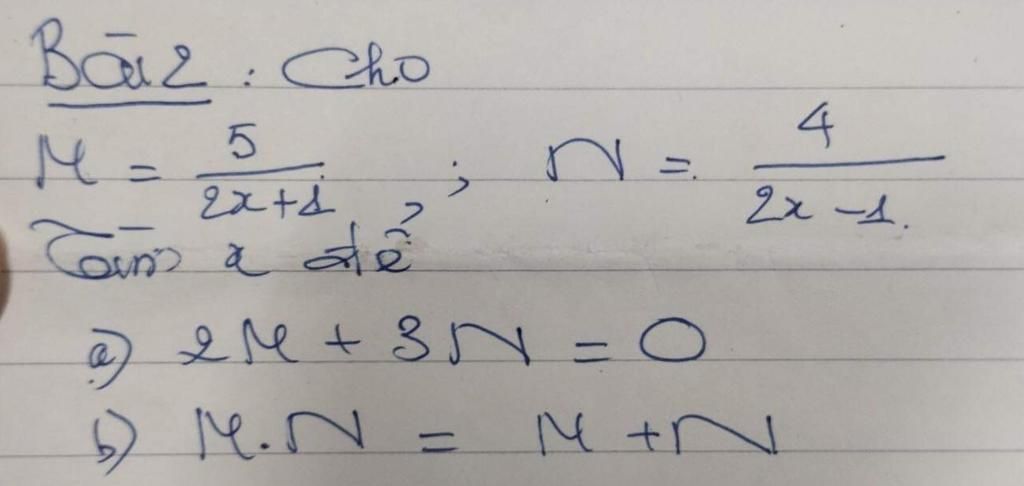 Bài 2 : Cho
M = 5/(2x+1) ; N = 4/(2x-1).
Tìm x để
a) 2M + 3N = 0
b) M.N = M + N